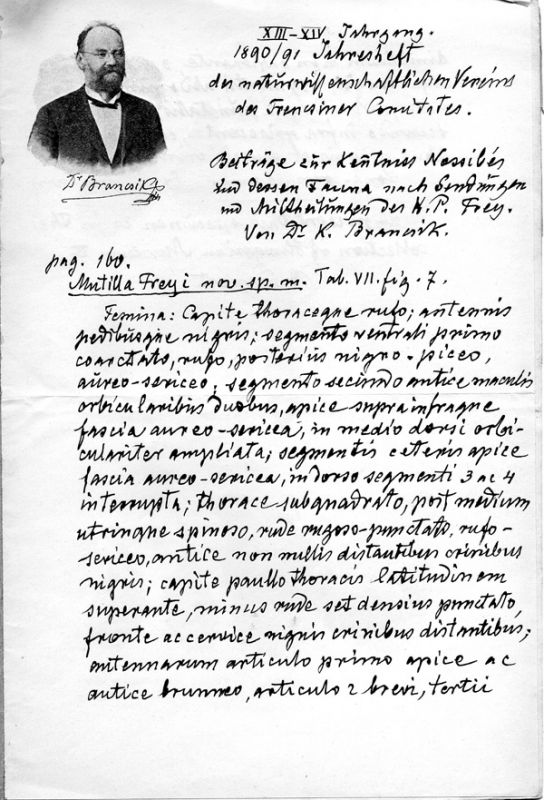 XIII–XIV Jahrgang.
1890/91 Jahresheft
des naturwissenschaftlichen Vereins
des Trencsiner Comitates.
Dr Brancsik
Beiträge zur Kentniss Nossibés
und dessen Fauna nach Sendungen
und Mittheilungen des H. P. Frey.
Von Dr. K. Brancsik.
pag. 160.
Mutilla Freyi nov. sp. m. Tab. VII. fig. 7.
Femina: Capite thoraceque rufo; antennis
pedibusque nigris; segmento ventrali primo
coarctato, rufo, posterius nigro-piceo,
aureo-sericeo; segmento secundo antice maculis
orbicularibus duobus, apice supra infraque
fascia aureo-sericea, in medio dorsi orbi-
culariter ampliata; segmentis ceteris apice
fascia aureo-sericea, in dorso segmenti 3 ac 4
interrupta; thorace subquadrato, post medium
utrinque spinoso, rude rugoso-punctato, rufo-
sericeo, antice non nullis distantibus crinibus
nigris; capite paullo thoracis latitudinem
superante, minus rude set densius punctato,
fronte ac cervice nigris crinibus distantibus;
antennarum articulo primo apice ac
antice brunneo, articulo 2 brevi, tertii